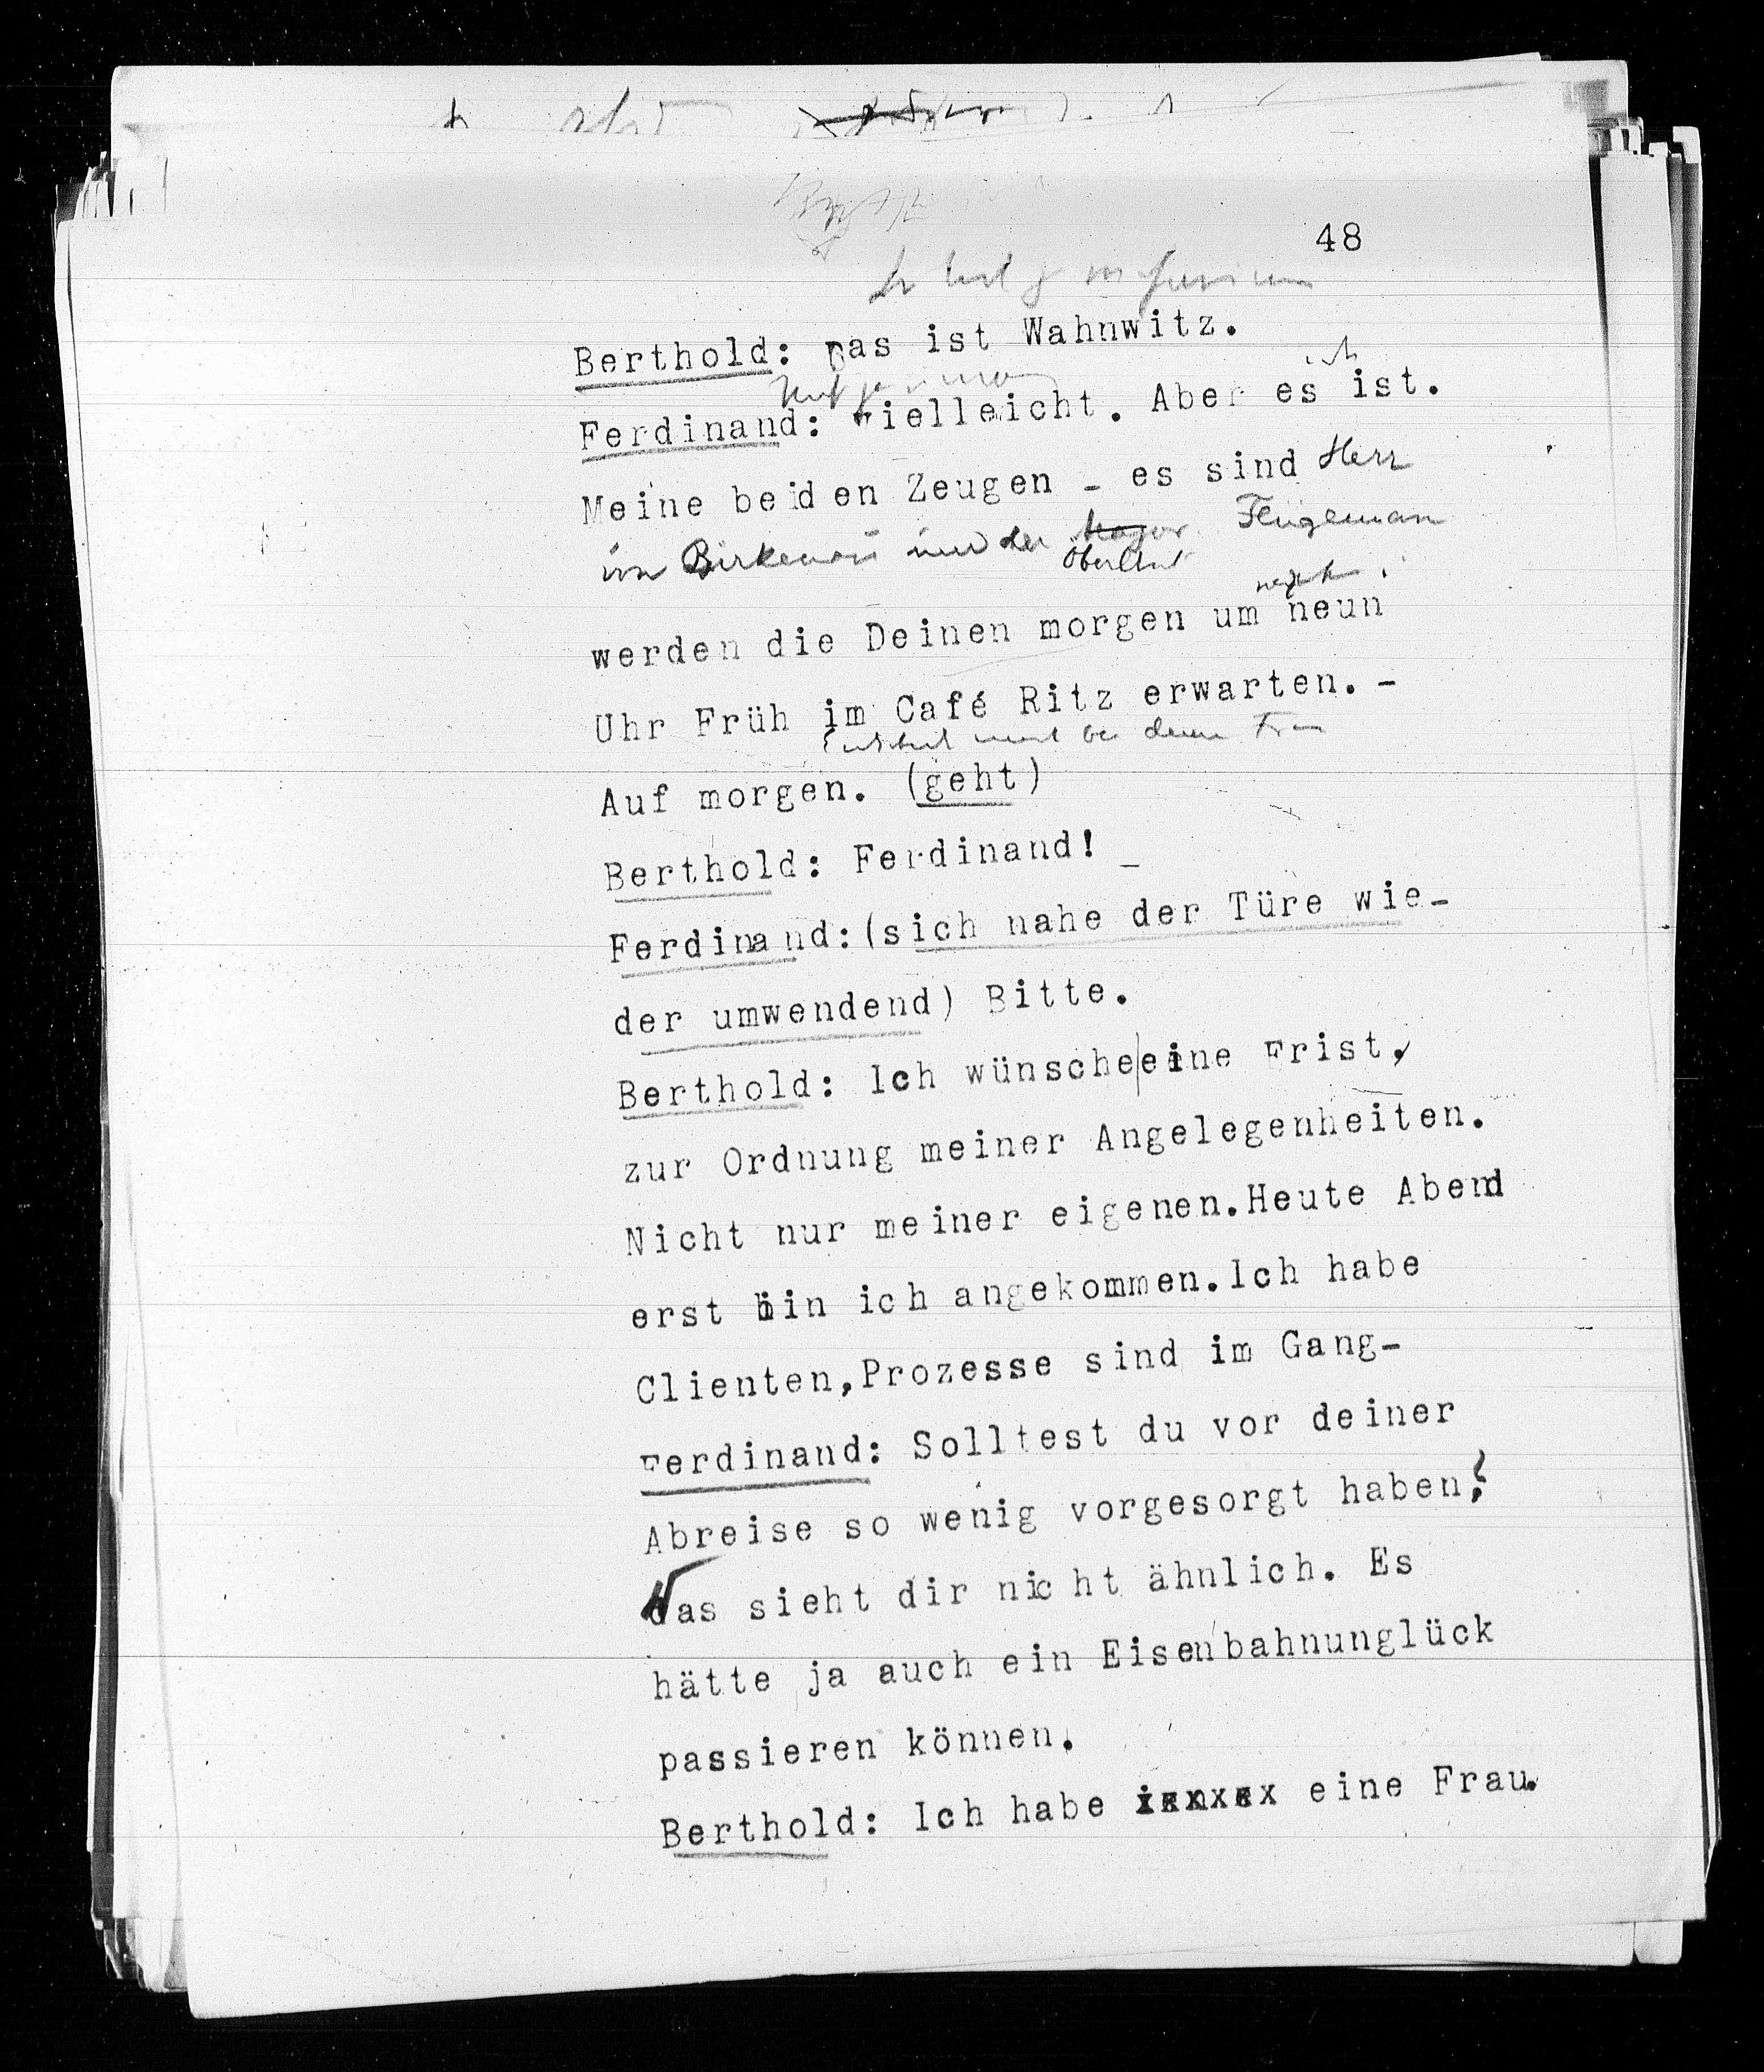 48
Berthold: Das ist Wahnwitz.
Ferdinand: Vielleicht. Aber es ist.
Meine beiden Zeugen - es sind Herr
von Birkenau und der Major Flügelmann
Oberlt
werden die Deinen morgen um neun
Uhr Früh im Café Ritz erwarten. -
Auf morgen. (geht)
Berthold: Ferdinand! _
Ferdinand:(sich nahe der Türe wie-
der umwendend) Bitte.
Berthold: Ich wünsche|eine Frist,
zur Ordnung meiner Angelegenheiten.
Nicht nur meiner eigenen.Heute Abend
erst bin ich angekommen.Ich habe
Clienten,Prozesse sind im Gang-
Ferdinand: Solltest du vor deiner
Abreise so wenig vorgesorgt haben?
das sieht dir nicht ähnlich. Es
hätte ja auch ein Eisenbahnunglück
passieren können.
Berthold: Ich habe eine Frau.